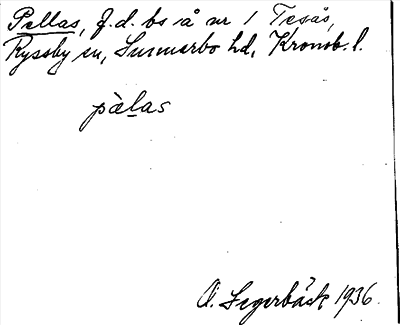 Pellas, f.d. bs å nr 1 Tesås,
Ryssby sn, Sunnerbo hd, Kronob. l.
pàlas
Segerbäck 1936.